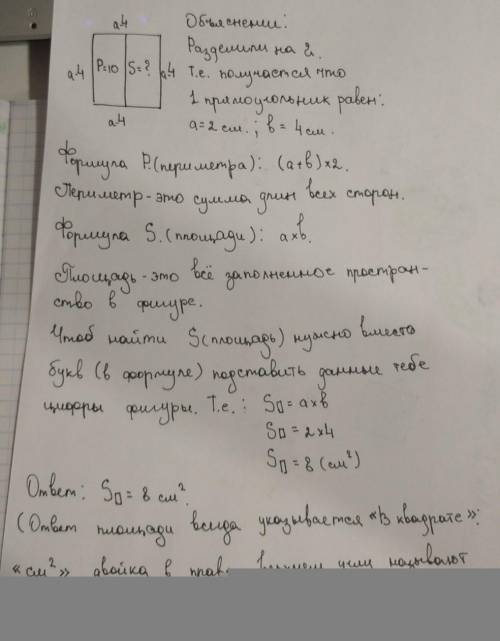 a4
Объяснении:
Разделили на 2.
a4 P=10 S=? a4
Т.е. получается что
1 прямоугольник равен:
a4
a=2 см.; b=4 см.
Формула P.(периметра): (a+b)×2.
Периметр-это сумма длин всех сторон.
Формула S.(площади): a×b.
Площадь-это всё заполненное простран-
ство в фигуре.
Чтоб найти S(площадь) нужно вместо
букв (в формуле) подставить данные тебе
цифры фигуры. Т.е.: S▯=a×b
S▯=2×4
S▯=8(см²)
Ответ: S▯=8 см².
(Ответ площади всегда указывается «В квадрате»:
«см²» двойка в называют